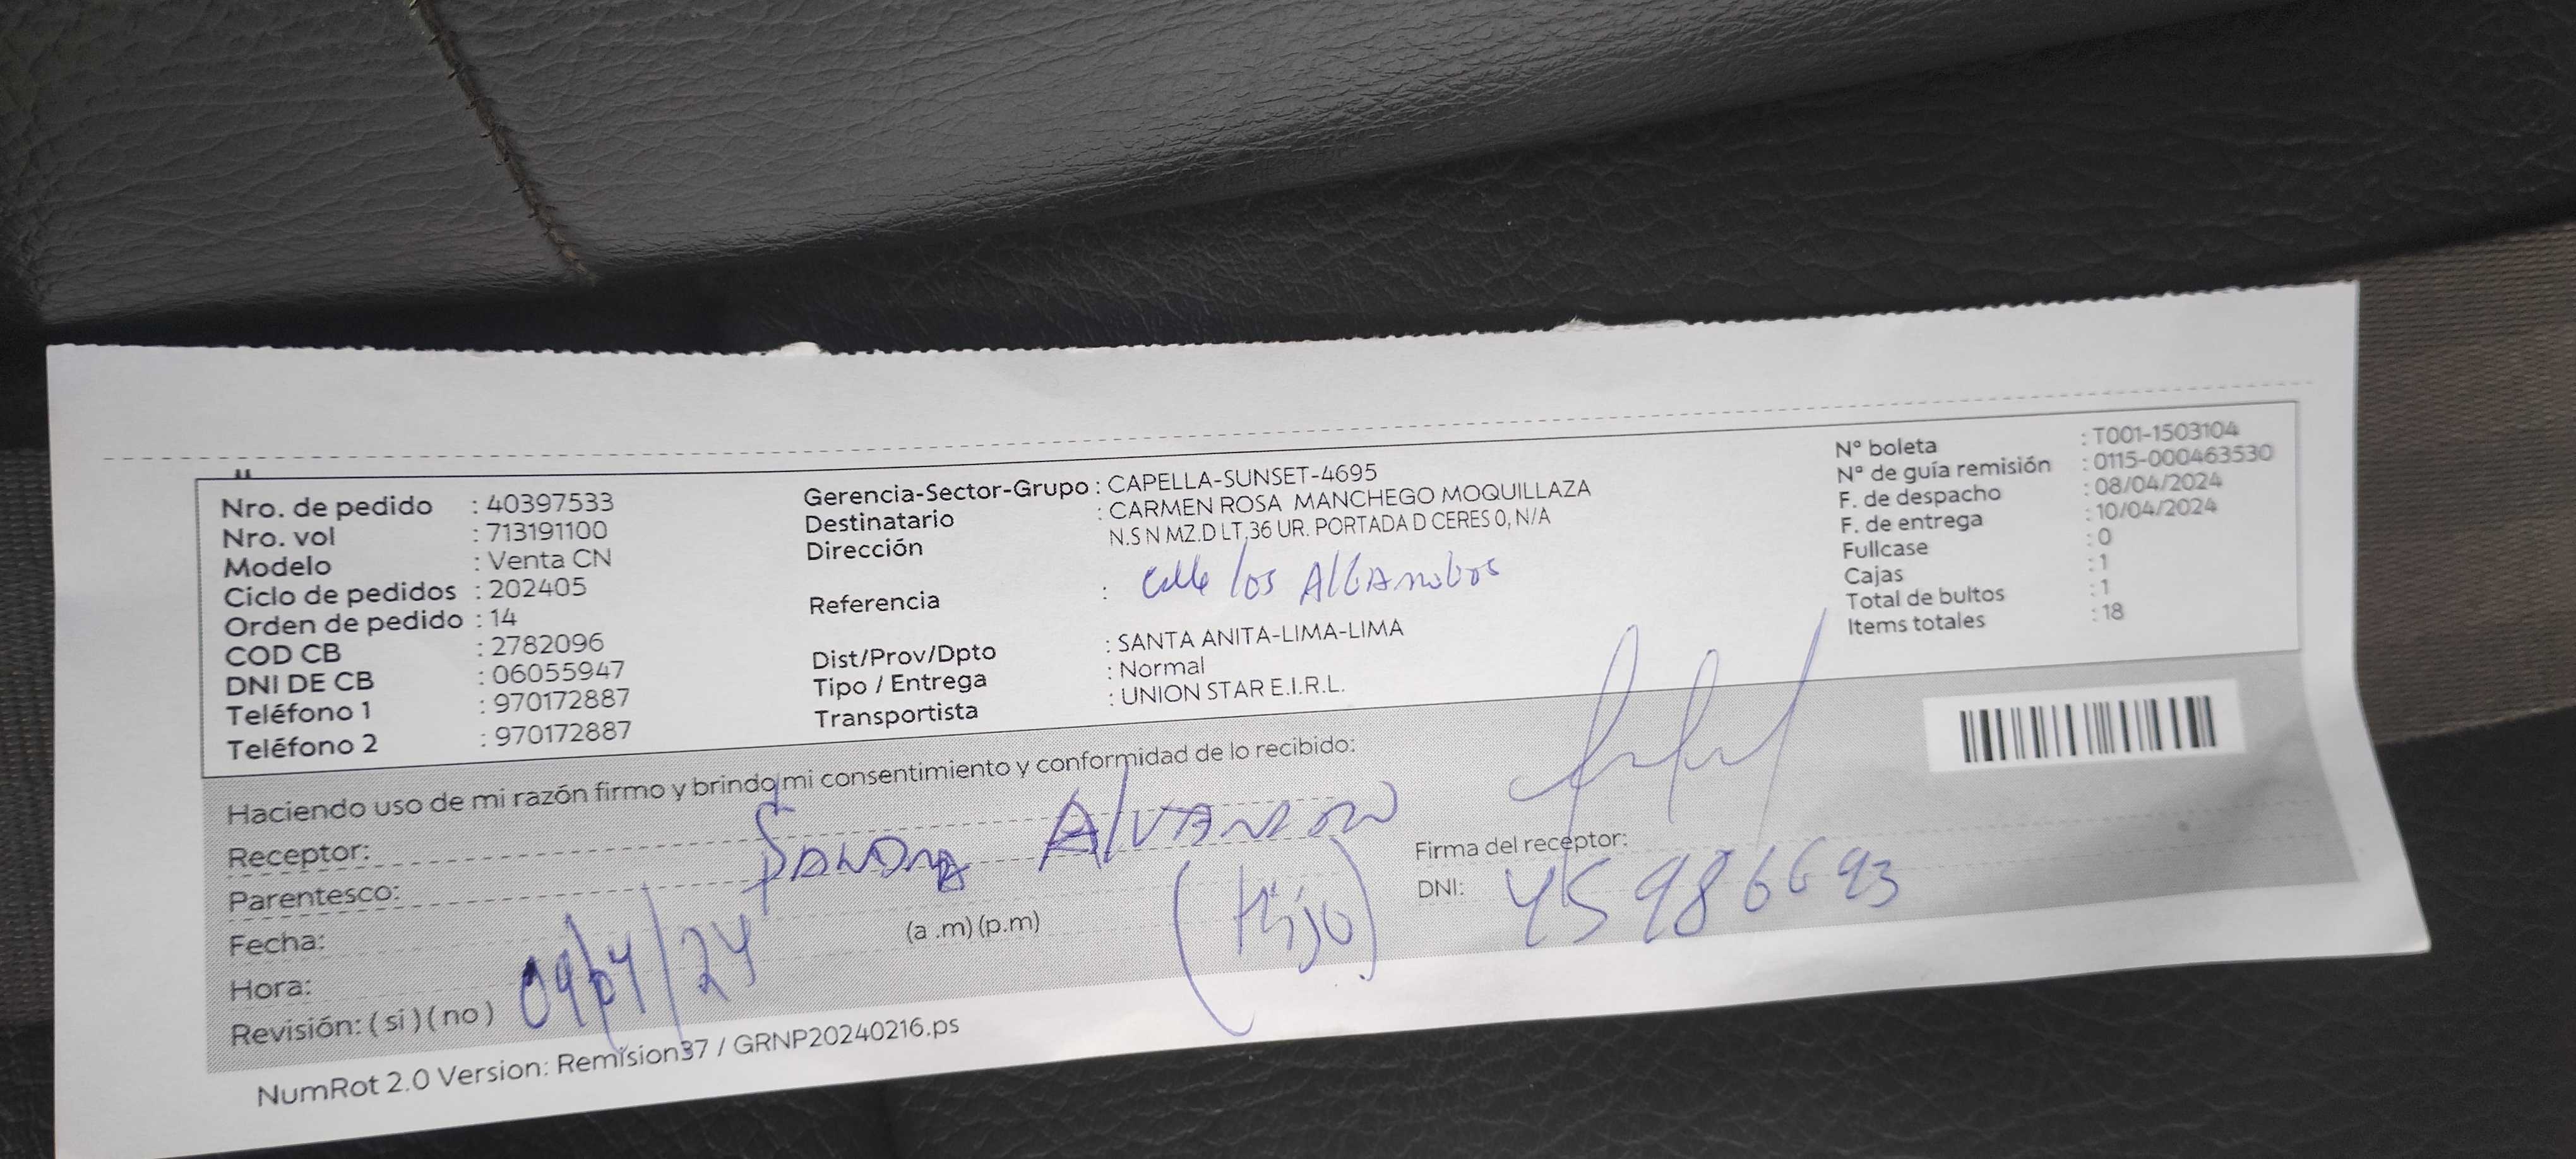 Nro. de pedido : 40397533
Nro. vol : 713191100
Modelo : Venta CN
Ciclo de pedidos : 202405
Orden de pedido : 14
COD CB : 2782096
DNI DE CB : 06055947
Teléfono 1 : 970172887
Teléfono 2 : 970172887
Gerencia-Sector-Grupo : CAPELLA-SUNSET-4695
Destinatario : CARMEN ROSA MANCHEGO MOQUILLAZA
Dirección N.S N MZ.D LT,36 UR. PORTADA D CERES 0, N/A
Referencia : Calle los Algarrobos
Dist/Prov/Dpto : SANTA ANITA-LIMA-LIMA
Tipo / Entrega : Normal
Transportista : UNION STAR E.I.R.L.
N° boleta : T001-1503104
N° de guía remisión : 0115-000463530
F. de despacho : 08/04/2024
F. de entrega : 10/04/2024
Fullcase : 0
Cajas : 1
Total de bultos : 1
Items totales : 18
Haciendo uso de mi razón firmo y brindo mi consentimiento y conformidad de lo recibido:
Receptor:
Parentesco: (Hijo)
Fecha: 09/04/24
Hora: (a .m) (p.m)
Revisión: ( si ) ( no )
Firma del receptor:
DNI: 45986693
NumRot 2.0 Version: Remision37 / GRNP20240216.ps